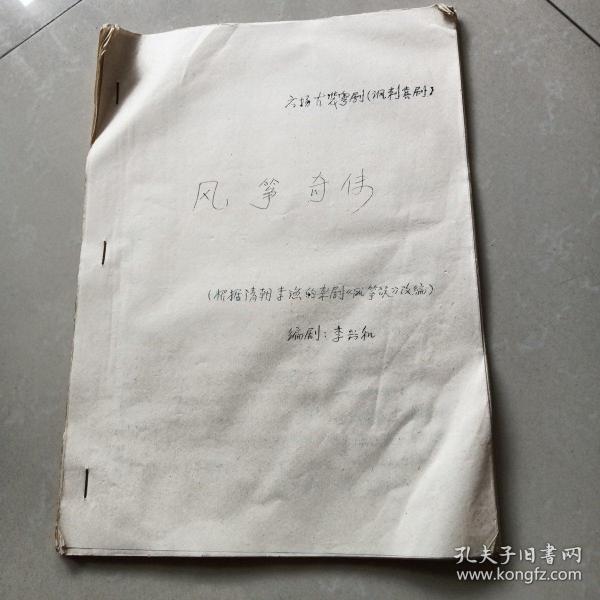 六场古装粤剧(讽刺喜剧)
风筝奇缘
(根据清朝李渔的杂剧《风筝误》改编)
编剧:李
孔夫子旧书网
www.kongfz.com